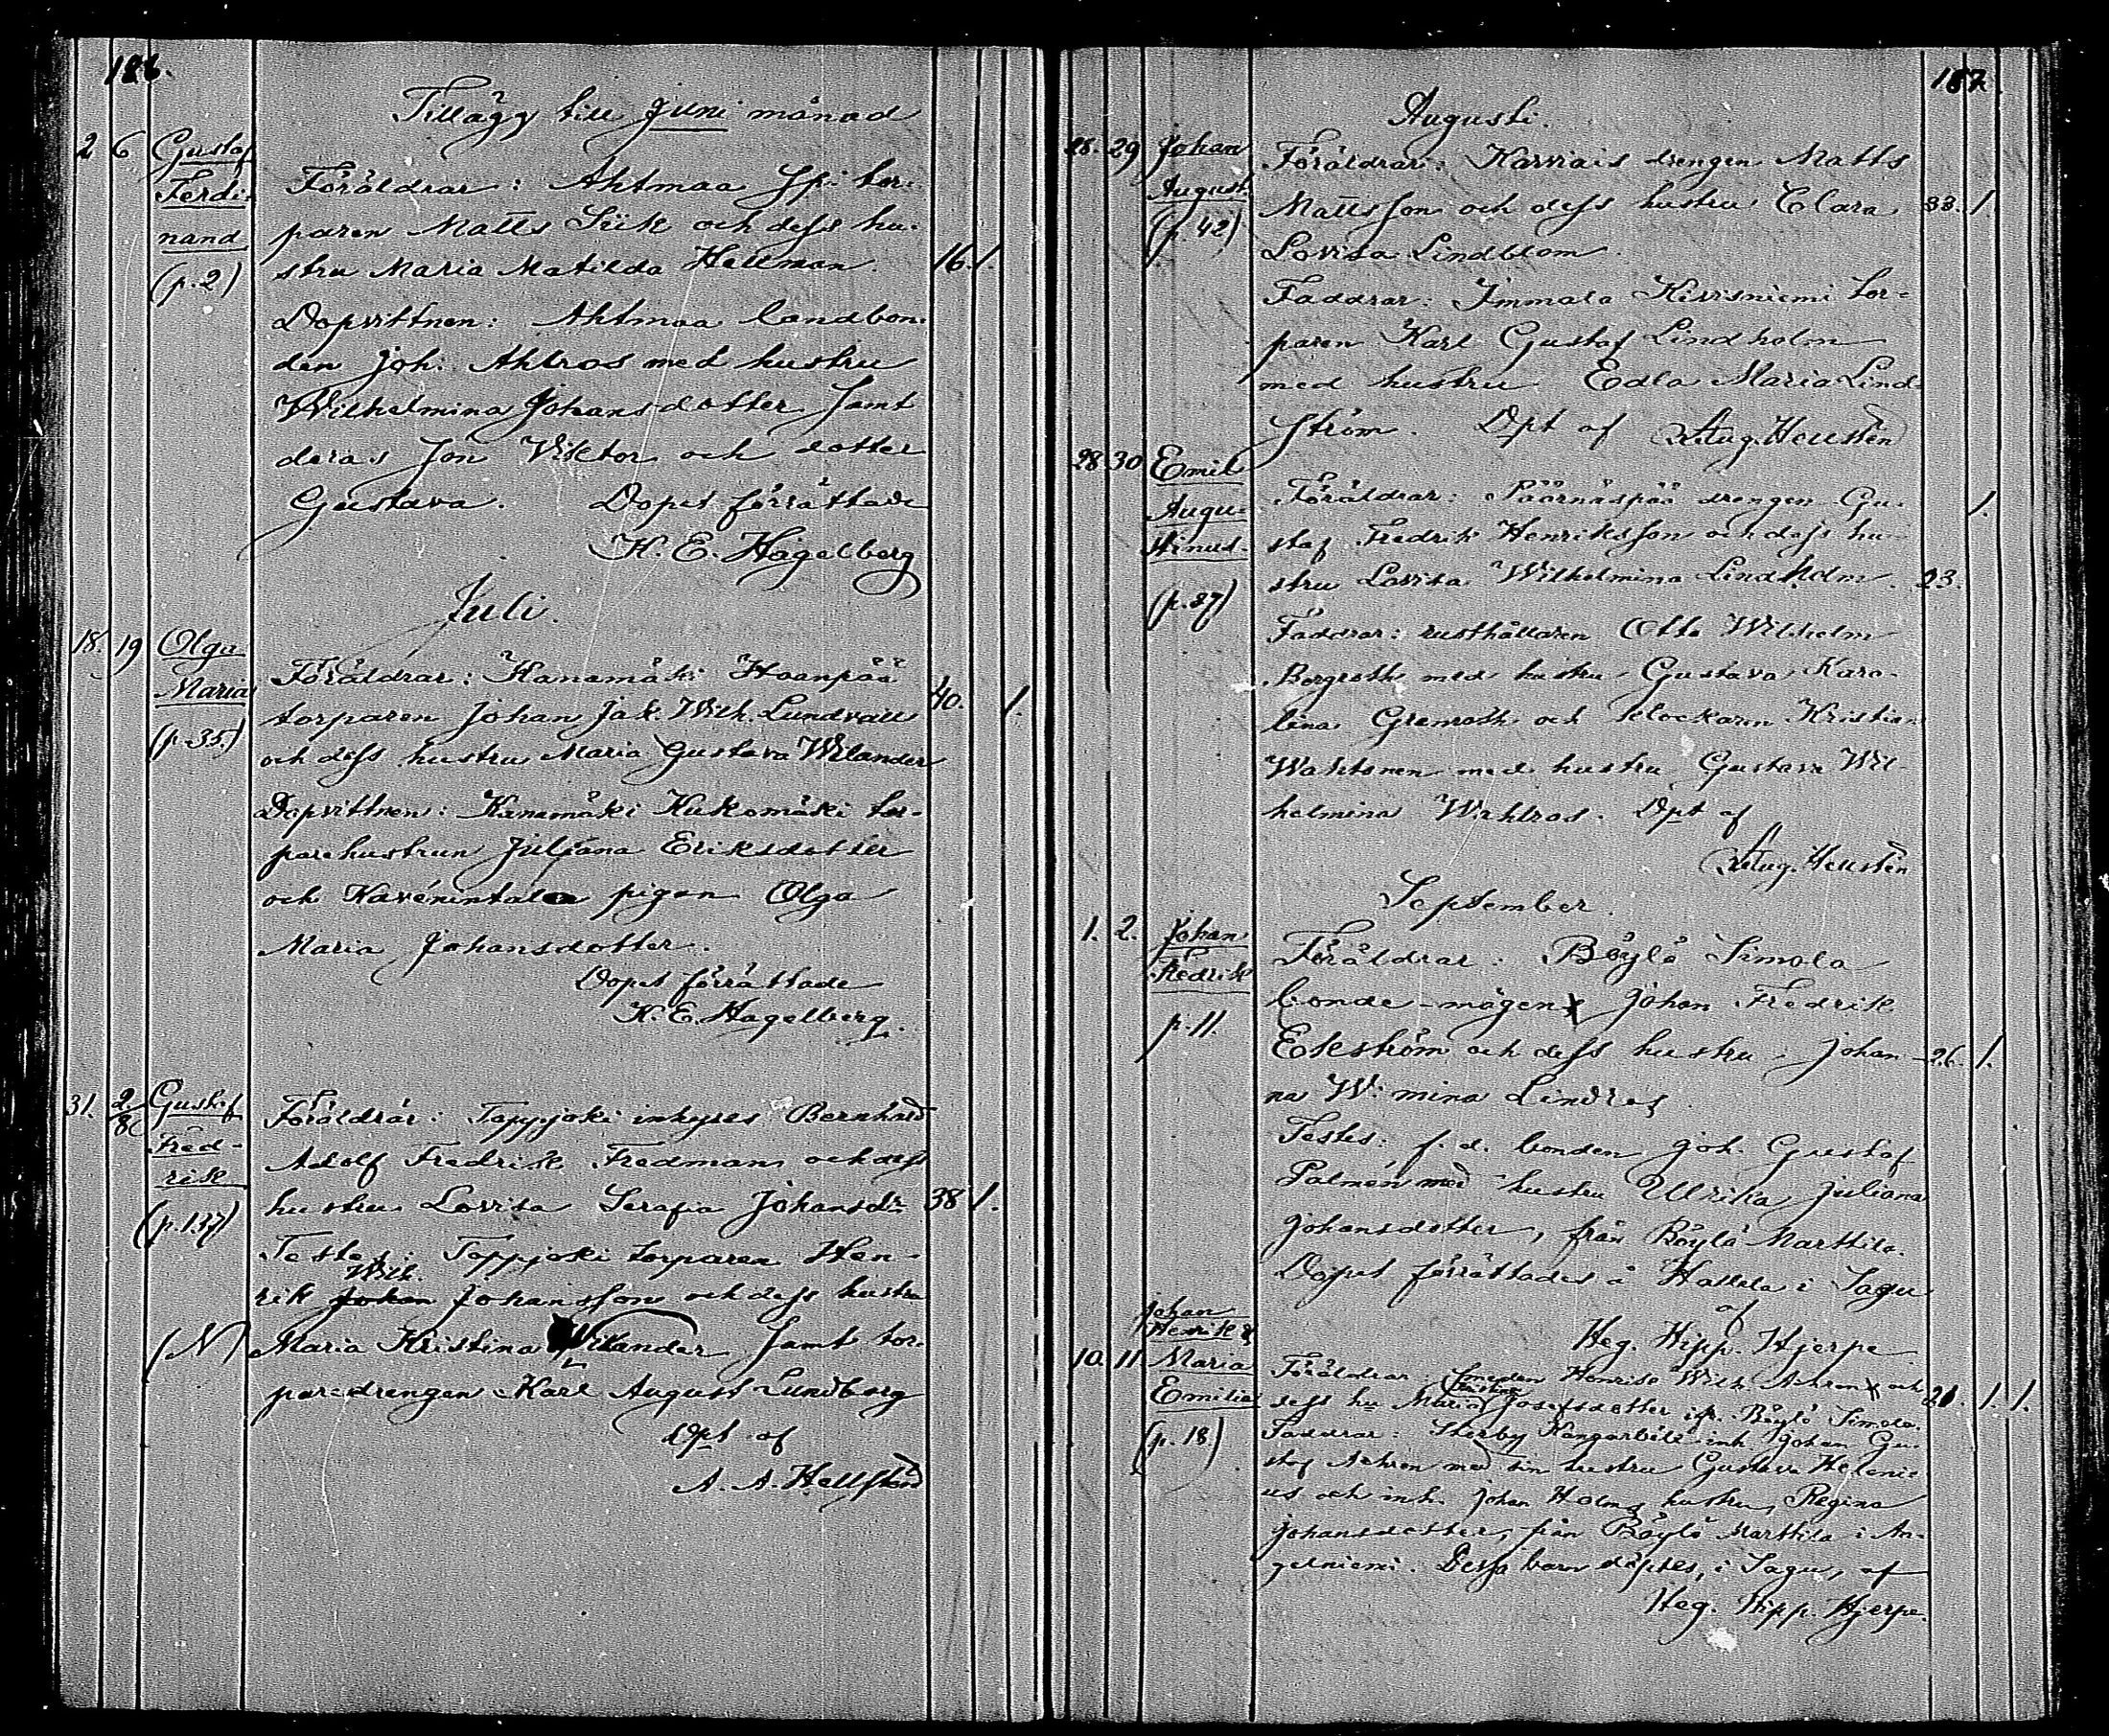 186.
Tillägg till Juni månad
2 6 Gustaf
Ferdi-
nand
(p. 2)
Föräldrar: Ahtmaa Spi tor-
paren Matts Siik och dess hu-
stru Maria Matilda Hellman. 16. 1.
Dopvittnen: Ahtmaa landbon-
den Joh. Ahlros med hustru
Wilhelmina Johansdotter samt
deras son Viktor och dotter
Gustava. Dopet förrättade
K. E. Hagelberg
Juli.
18. 19 Olga
Maria
(p. 35.)
Föräldrar: Kanamäki Haanpää
torparen Johan Jak. Wilh. Lundvall 40. 1.
och dess hustru Maria Gustava Wilander
Dopvittnen: Kanamäki Kukomäki tor-
parehustrun Juljana Eriksdotter
och pigan Olga
Maria Johansdotter.
Dopet förrättade
K. E. Hagelberg.
31. 2/8 Gustaf
Fred-
rik
(p. 137)
(N)
Föräldrar: Toppjoki inhyses Bernhard
Adolf Fredrik Fredman och dess
hustru Lovisa Serafia Johansdr 38 1.
Testes: Toppjoki torparen Hen-
Wilh.
rik Johan Johansson och dess hustru
Maria Kristina Wilander samt tor-
paredrengen Karl August Lundborg
Dpt af
A. A. Hellstén
187
Augusti.
28. 29 Johan
August
(p. 42)
Föräldrar: Karviais drengen Matts
Mattsson och dess hustru Clara 33. 1.
Lovisa Lindblom.
Faddrar: Immala Kivisniemi tor-
paren Karl Gustaf Lindholm
med hustru Edla Maria Lind-
ström. Dpt af Aug. Hellstén
28 30 Emil
Augu-
stinus
(p. 27)
Föräldrar: Päärnäspää drengen Gu- 1.
staf Fredrik Henriksson och dess hu-
stru Lovisa Wilhelmina Lindholm. 23.
Faddrar: rusthållaren Otto Wilhelm
Borgroth med hustru Gustava Karo-
lina Grenroth och klockaren Kristian
med hustru Gustava Wil
helmina Wahlros. Dpt af
Aug. Hellstén
September.
1. 2. Johan
Fredrik
p. 11.
Föräldrar: Böylä Simola
bonde-mågen Johan Fredrik
Ekström och dess hustru Johan- 26. 1.
na W:mina Lindros
Testes: f. d. bonden Joh. Gustaf
Palmén med hustru Ulrika Juliana
Johansdotter, från Böylä Marttila.
Dopet förrättades å Hallela i Sagu
af
Heg. Hipp. Hjerpe
Johan
Henrik &
10. 11 Maria
Emilia
(p. 18)
Föräldrar: smeden Henrik Wilh. Achren och 21. 1. 1.
dess hu Maria Josefsdotter ifr. Böylä Simola.
Faddrar: Storby Kangarbäck inh Johan Gu-
staf Achren med sin hustru Gustava Heleni-
us och inh. Johan Holms hustru, Regina
Johansdotter, från Böylä Marttila i An-
gelniemi. Dessa barn döptes, i Sagu, af
Heg. Hipp. Hjerpe.